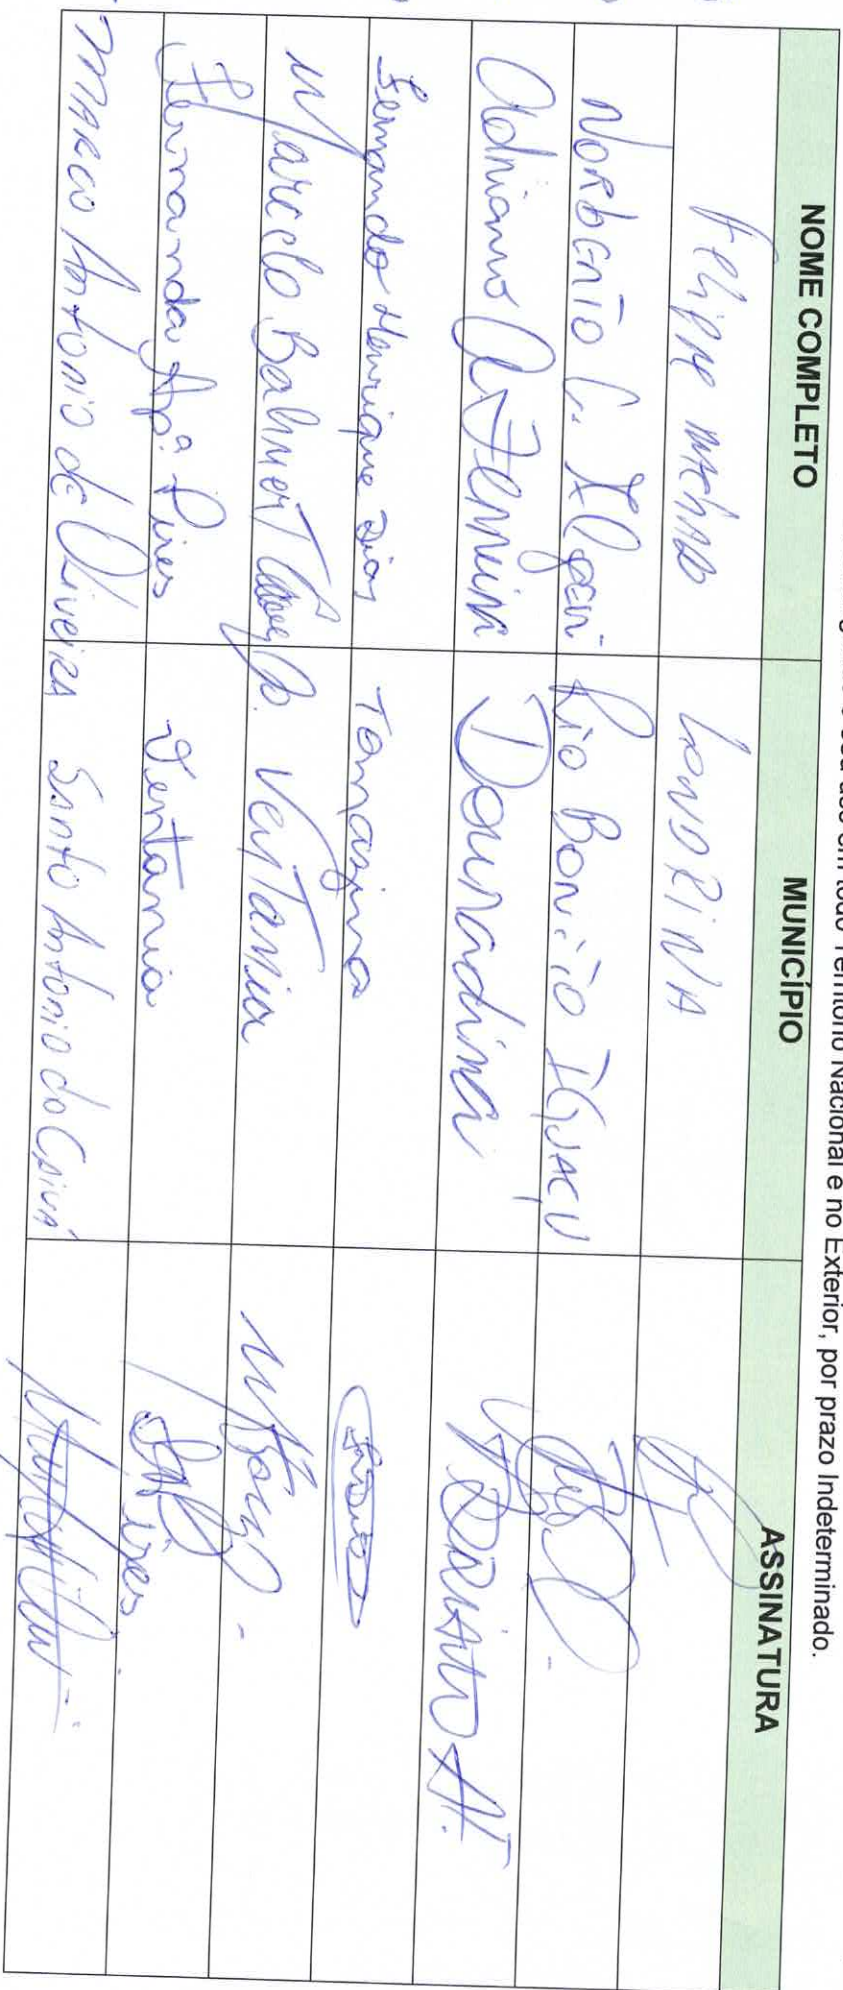 seu uso em todo Território Nacional e no Exterior, por prazo Indeterminado.
NOME COMPLETO MUNICÍPIO ASSINATURA
Felipe Machado LONDRINA
Norberto C. Rio Bonito IGUAÇU
Adriano A. Ferreira Douradina ADRIANO AF.
Fernando Henrique Dias Tomazina
Marcelo Ventania
Fernanda Apª. Pires Ventania Pires
MARCO Antonio de Oliveira Santo Antonio do Caiuá